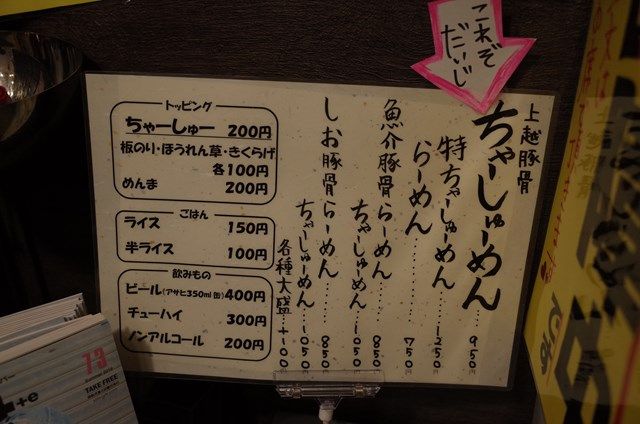 これぞ
だーいじ
上越豚骨
ちゃーしゅーめん……950円
特ちゃーしゅーめん…1250円
らーめん……750円
魚介豚骨らーめん……850円
ちゃーしゅーめん…1050円
しお豚骨らーめん……850円
ちゃーしゅーめん…1050円
各種大盛…+100
トッピング
ちゃーしゅー 200円
板のり・ほうれん草・きくらげ
各100円
めんま 200円
ごはん
ライス 150円
半ライス 100円
飲みもの
ビール(アサヒ350ml 缶) 400円
チューハイ 300円
ノンアルコール 200円
13
TAKE FREE
+e